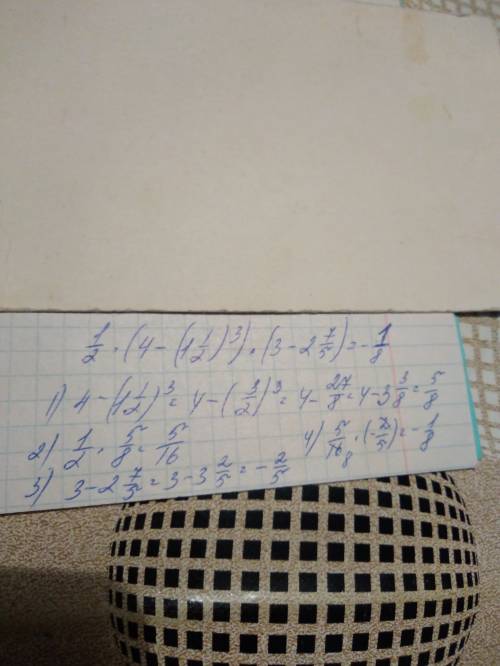 1/2 · (4 − (1 1/2)³) · (3 − 2 7/5) = −1/8
1) 4 − (1 1/2)³ = 4 − (3/2)³ = 4 − 27/8 = 4 − 3 3/8 = 5/8
2) 1/2 · 5/8 = 5/16
3) 3 − 2 7/5 = 3 − 3 2/5 = −2/5
4) 5/16 8 · (−2/5) = −1/8